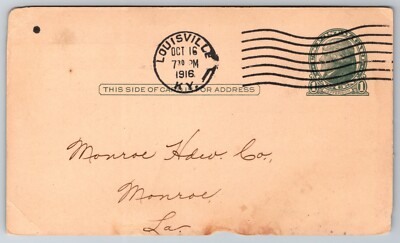 LOUISVILLE
OCT 16
7 30 PM
1916
KY.
THIS SIDE OF CARD IS FOR ADDRESS
1
Monroe Hdw. Co.,
Monroe
La.